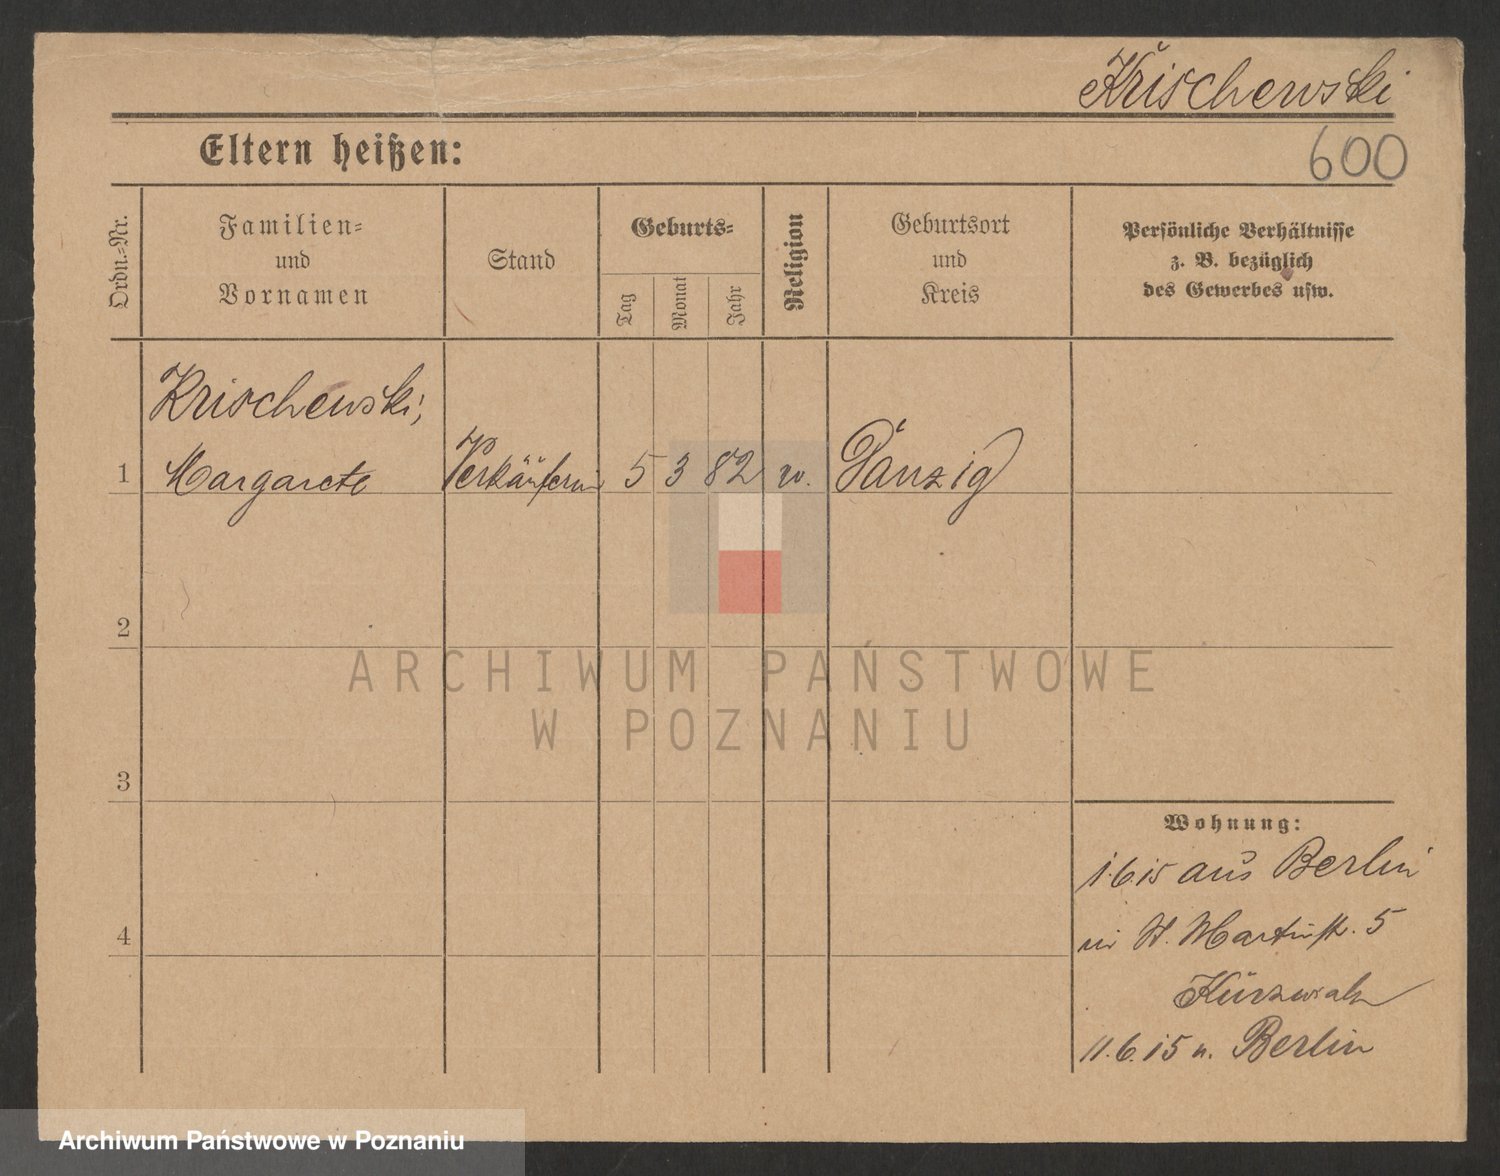 Krischewski
Eltern heißen:
600
Ordn.-Nr.
Familien-
und
Vornamen
Stand
Geburts-
Tag
Monat
Jahr
Religion
Geburtsort
und
Kreis
Persönliche Verhältnisse
z. B. bezüglich
des Gewerbes usw.
Krischewski,
1 Margarete Verkäuferin 5 3 82 Danzig
2
3
4
Wohnung:
1.6.15 aus Berlin
St. Martinstr. 5
11.6.15 n. Berlin
ARCHIWUM PAŃSTWOWE
W POZNANIU
Archiwum Państwowe w Poznaniu